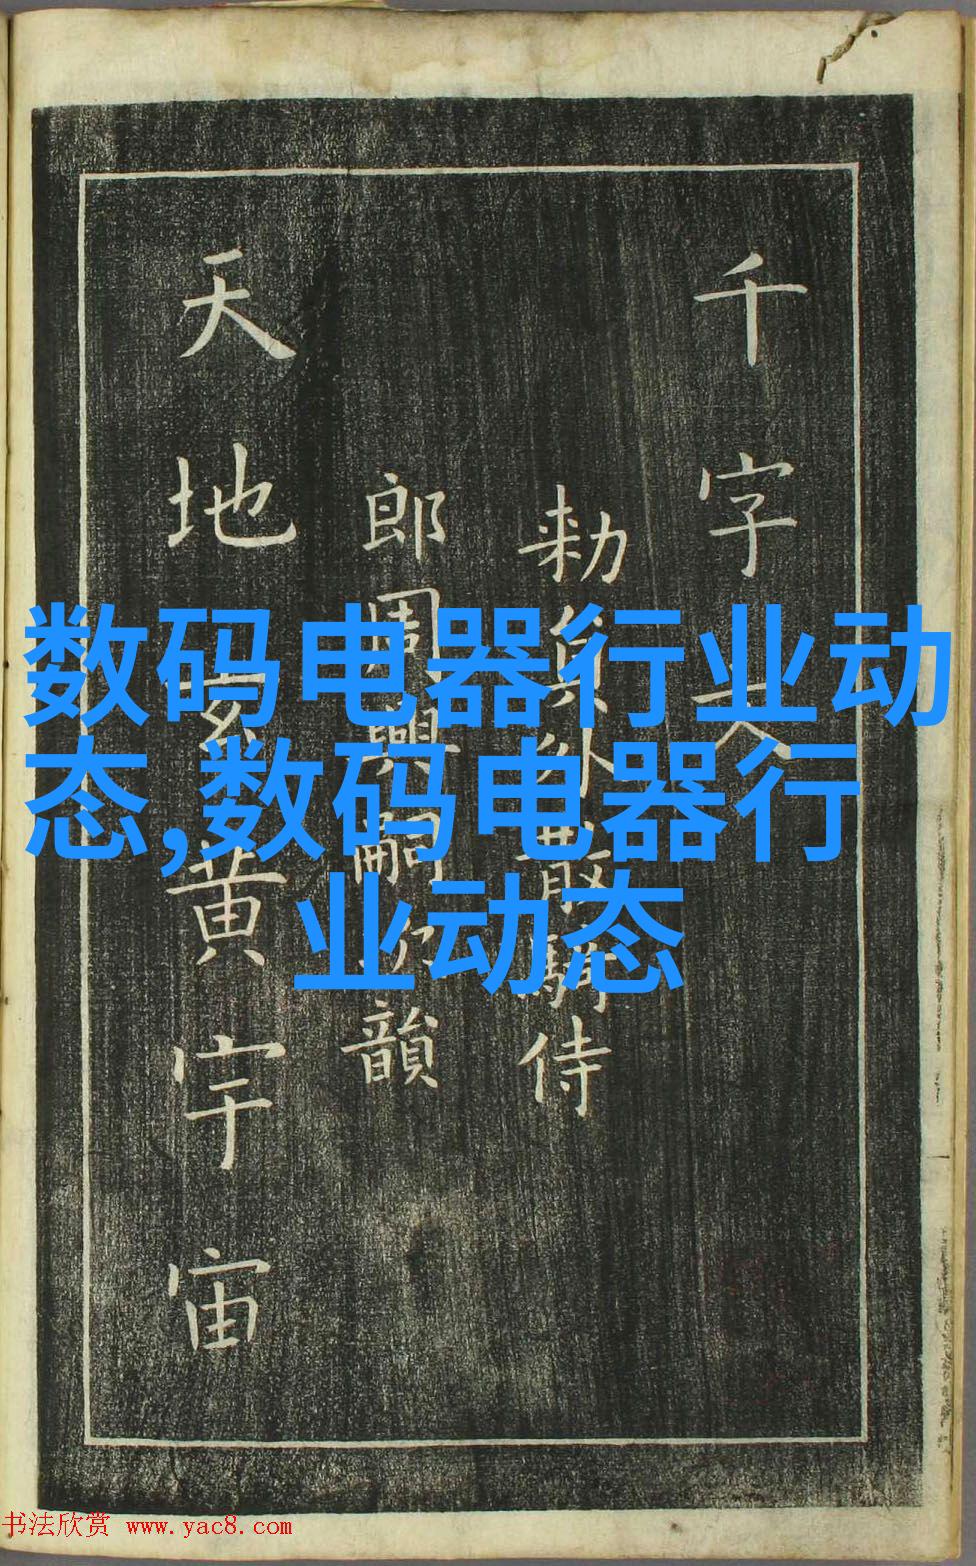 数码电器行业动
态,数码电器行
业动态
千字文
勑員外散騎侍
郎周興嗣次韻
天地玄黄宇宙
书法欣赏 www.yac8.com